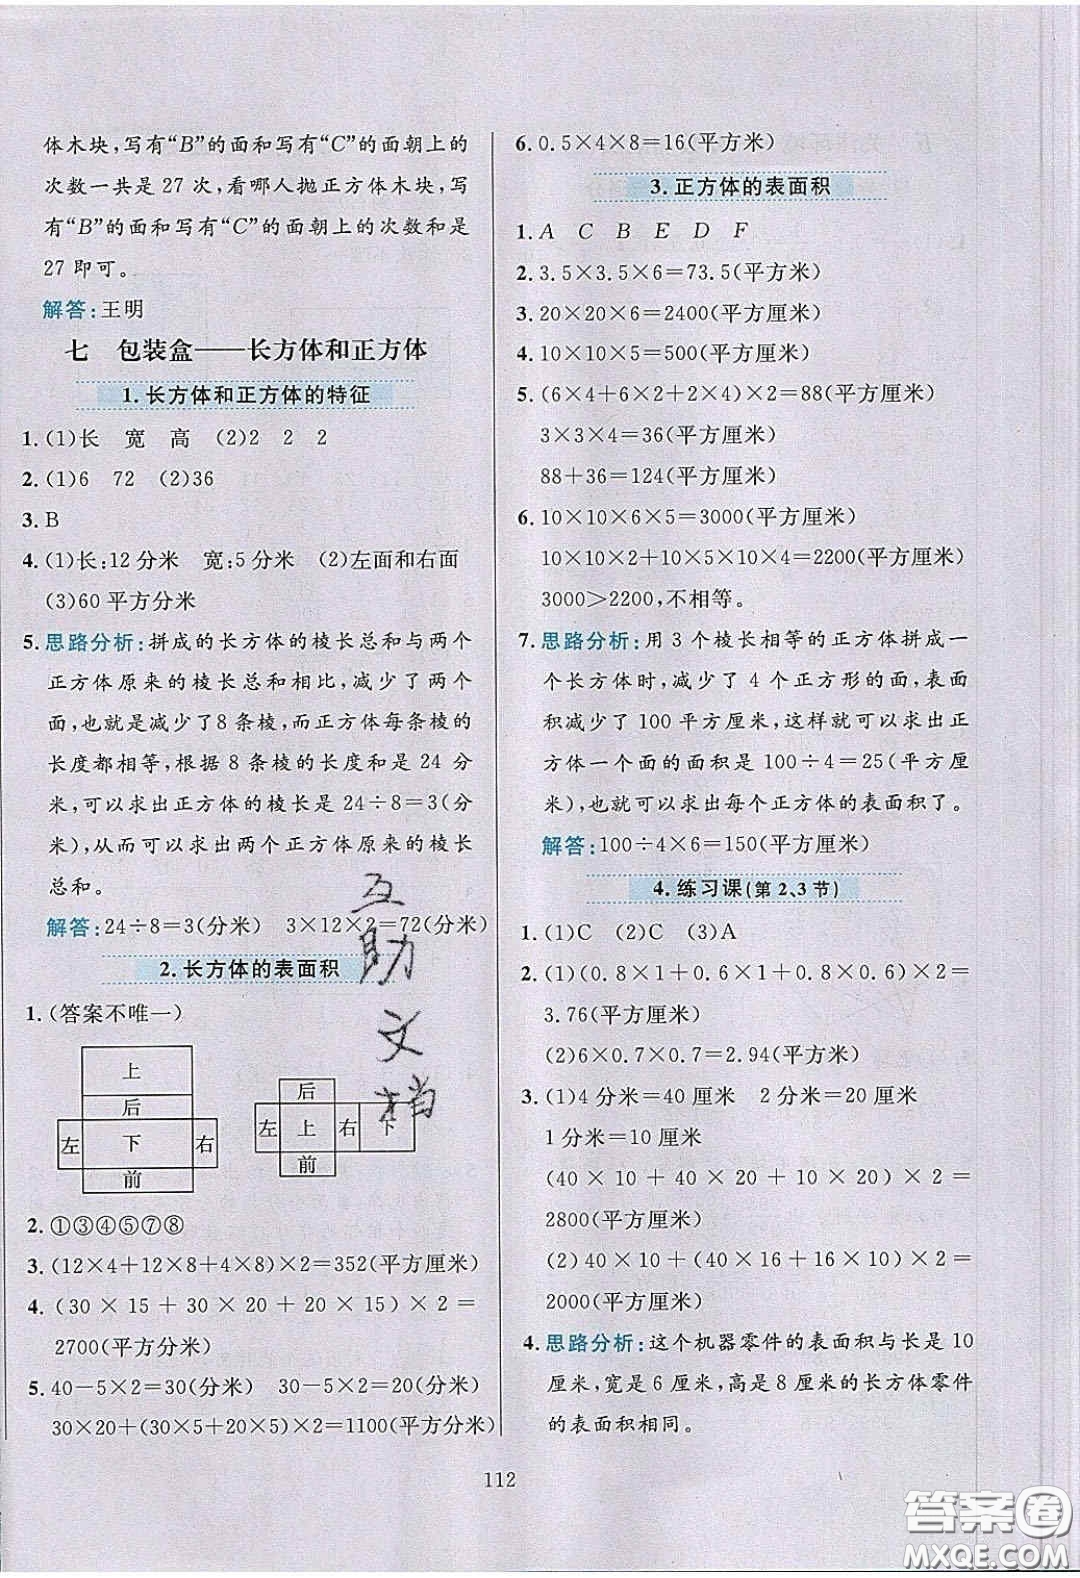 体木块,写有“B”的面和写有“C”的面朝上的
次数一共是 27 次,看哪人抛正方体木块,写
有“B”的面和写有“C”的面朝上的次数和是
27 即可。
解答:王明
七 包装盒——长方体和正方体
1.长方体和正方体的特征
1. (1)长 宽 高 (2)2 2 2
2. (1)6 72 (2)36
3. B
4. (1)长:12 分米 宽:5 分米 (2)左面和右面
(3)60 平方分米
5. 思路分析:拼成的长方体的棱长总和与两个
正方体原来的棱长总和相比,减少了两个
面,也就是减少了8 条棱,而正方体每条棱的
长度都相等,根据 8 条棱的长度和是 24 分
米,可以求出正方体的棱长是 24÷8=3(分
米),从而可以求出两个正方体原来的棱长
总和。
解答:24÷8=3(分米) 3×12×2=72(分米)
2.长方体的表面积
1. (答案不唯一)
上
后
左 下 右
前
后
左 上 右 下
前
2. ①③④⑤⑦⑧
3. (12×4+12×8+4×8)×2=352(平方厘米)
4. (30×15+30×20+20×15)×2=
2700(平方分米)
5. 40-5×2=30(分米) 30-5×2=20(分米)
30×20+(30×5+20×5)×2=1100(平方分米)
6. 0.5×4×8=16(平方米)
3.正方体的表面积
1. A C B E D F
2. 3.5×3.5×6=73.5(平方分米)
3. 20×20×6=2400(平方厘米)
4. 10×10×5=500(平方厘米)
5. (6×4+6×2+2×4)×2=88(平方厘米)
3×3×4=36(平方厘米)
88+36=124(平方厘米)
6. 10×10×6×5=3000(平方厘米)
10×10×2+10×5×10×4=2200(平方厘米)
3000>2200,不相等。
7. 思路分析:用 3 个棱长相等的正方体拼成一
个长方体时,减少了 4 个正方形的面,表面
积减少了 100 平方厘米,这样就可以求出正
方体一个面的面积是 100÷4=25(平方厘
米),也就可以求出每个正方体的表面积了。
解答:100÷4×6=150(平方厘米)
4.练习课(第 2、3 节)
1. (1)C (2)C (3)A
2. (1)(0.8×1+0.6×1+0.8×0.6)×2=
3.76(平方厘米)
(2)6×0.7×0.7=2.94(平方米)
3. (1)4 分米=40 厘米 2 分米=20 厘米
1 分米=10 厘米
(40×10+40×20+10×20)×2=
2800(平方厘米)
(2)40×10+(40×16+16×10)×2=
2000(平方厘米)
4. 思路分析:这个机器零件的表面积与长是 10
厘米,宽是 6 厘米,高是 8 厘米的长方体零件
的表面积相同。
112
互助文档
答案圈
MXQE.COM